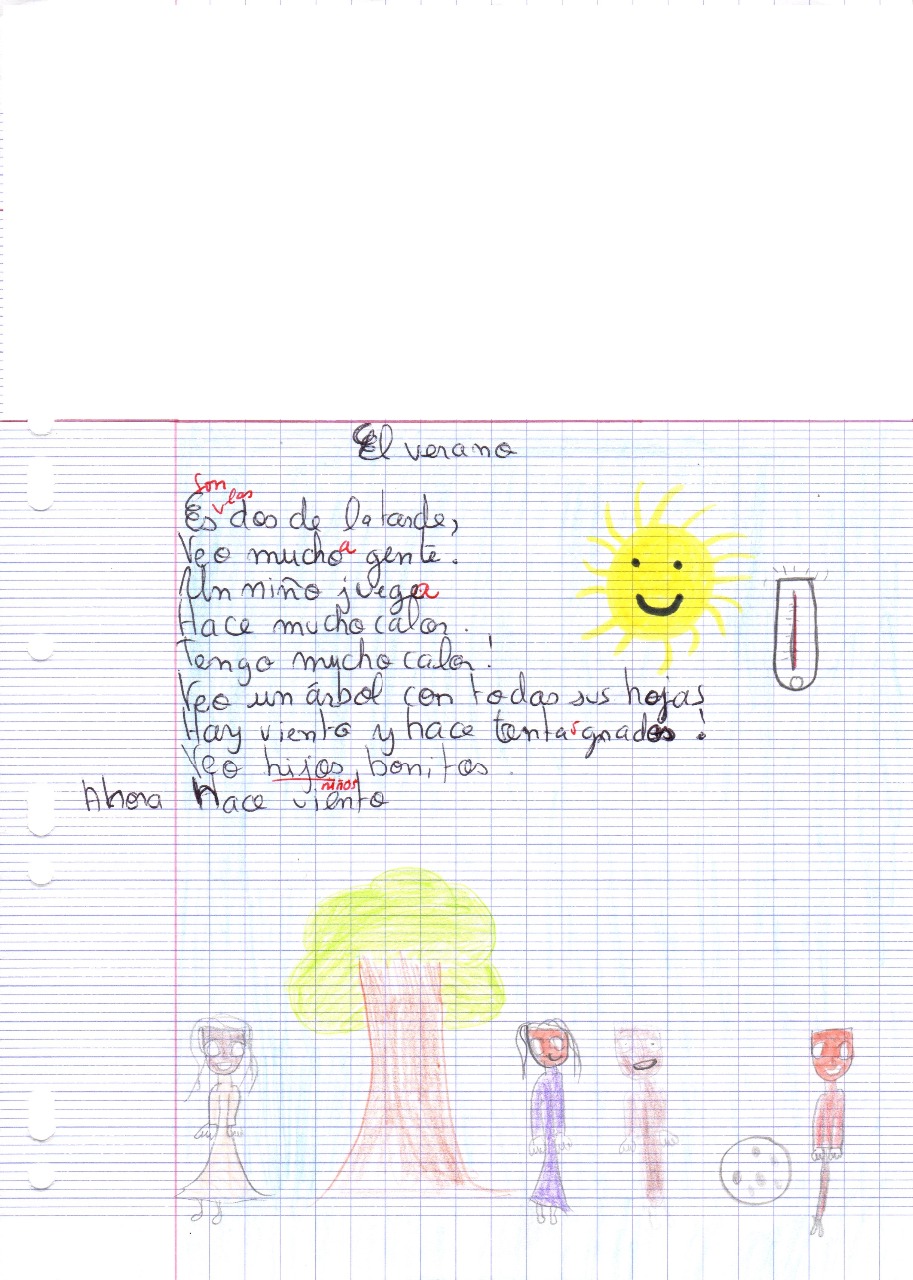 El verano
son
las
Es dos de la tarde,
Veo mucho a gente.
Un niño juega
Hace mucho calor.
Tengo mucho calor!
Veo un árbol con todas sus hojas
Hay viento y hace
Veo hijos bonitos.
niños
Ahora Hace viento